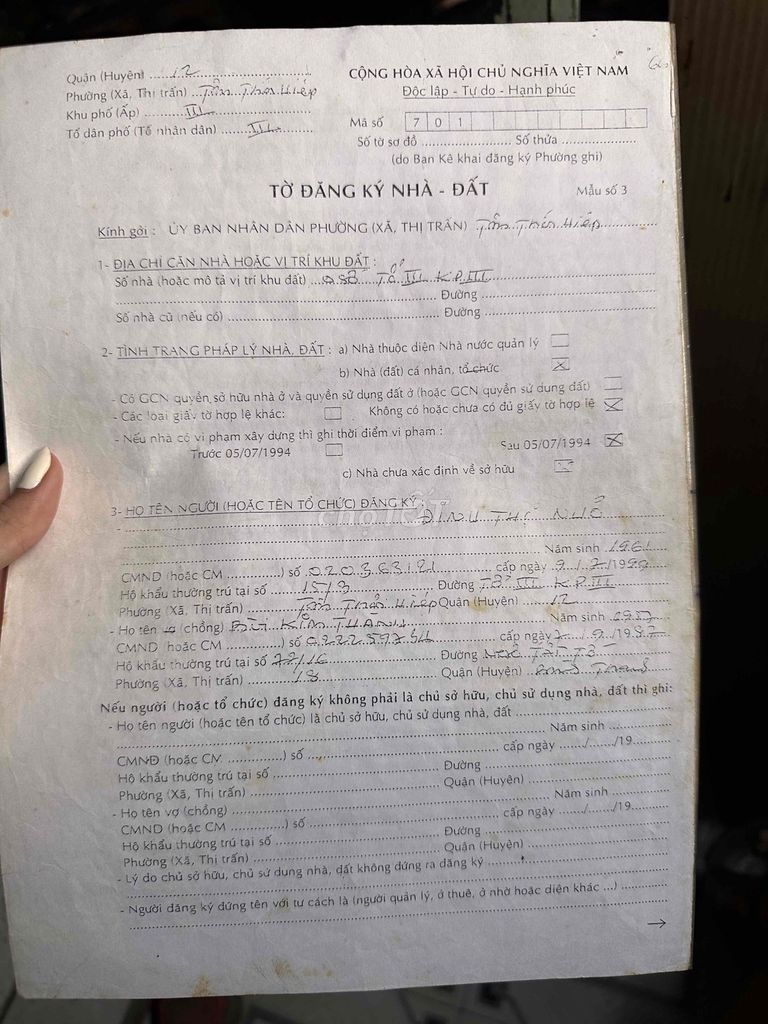 Quận (Huyện) ...12...
Phường (Xã, Thị trấn) ...Tân Thới Hiệp
Khu phố (Ấp) ...III...
Tổ dân phố (Tổ nhân dân) ...III...
CỘNG HÒA XÃ HỘI CHỦ NGHĨA VIỆT NAM
Độc lập - Tự do - Hạnh phúc
Mã số 7 0 1
Số tờ sơ đồ ... Số thửa ...
(do Ban Kê khai đăng ký Phường ghi)
TỜ ĐĂNG KÝ NHÀ - ĐẤT Mẫu số 3
Kính gởi : ỦY BAN NHÂN DÂN PHƯỜNG (XÃ, THỊ TRẤN) Tân Thới Hiệp
1- ĐỊA CHỈ CĂN NHÀ HOẶC VỊ TRÍ KHU ĐẤT :
Số nhà (hoặc mô tả vị trí khu đất) ... Tổ III KP III
... Đường ...
Số nhà cũ (nếu có) ... Đường ...
2- TÌNH TRẠNG PHÁP LÝ NHÀ, ĐẤT : a) Nhà thuộc diện Nhà nước quản lý
b) Nhà (đất) cá nhân, tổ chức
- Có GCN quyền sở hữu nhà ở và quyền sử dụng đất ở (hoặc GCN quyền sử dụng đất)
- Các loại giấy tờ hợp lệ khác: Không có hoặc chưa có đủ giấy tờ hợp lệ
- Nếu nhà có vi phạm xây dựng thì ghi thời điểm vi phạm :
Trước 05/07/1994 Sau 05/07/1994
c) Nhà chưa xác định về sở hữu
3- HỌ TÊN NGƯỜI (HOẶC TÊN TỔ CHỨC) ĐĂNG KÝ
chợTỐT
- ... ĐINH THỊ NHỎ
... Năm sinh 1961
CMND (hoặc CM ...) số 020363121 cấp ngày 9/7/1990
Hộ khẩu thường trú tại số 15/3 Đường Tổ III KP III
Phường (Xã, Thị trấn) Tân Thới Hiệp Quận (Huyện) 12
- Họ tên vợ (chồng) BÙI KIM THÀNH Năm sinh
CMND (hoặc CM ...) số cấp ngày
Hộ khẩu thường trú tại số 72/16 Đường
Phường (Xã, Thị trấn) 13 Quận (Huyện)
Nếu người (hoặc tổ chức) đăng ký không phải là chủ sở hữu, chủ sử dụng nhà, đất thì ghi:
- Họ tên người (hoặc tên tổ chức) là chủ sở hữu, chủ sử dụng nhà, đất ...
... Năm sinh ...
CMND (hoặc CM ...) số ... cấp ngày .../.../19...
Hộ khẩu thường trú tại số ... Đường ...
Phường (Xã, Thị trấn) ... Quận (Huyện) ...
- Họ tên vợ (chồng) ... Năm sinh ...
CMND (hoặc CM ...) số ... cấp ngày .../.../19...
Hộ khẩu thường trú tại số ... Đường ...
Phường (Xã, Thị trấn) ... Quận (Huyện) ...
- Lý do chủ sở hữu, chủ sử dụng nhà, đất không đứng ra đăng ký ...
- Người đăng ký đứng tên với tư cách là (người quản lý, ở thuê, ở nhờ hoặc diện khác ...) ...
→